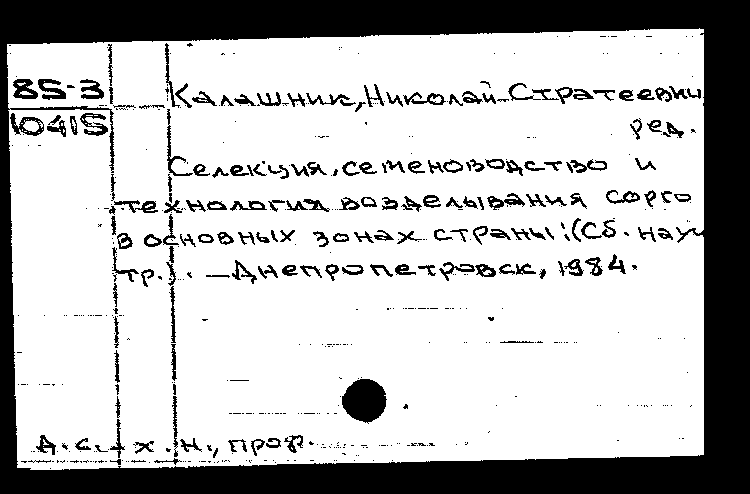 85-3
10415
Калашник, Николай Стратеевич
ред.
Селекция, семеноводство и
технология возделывания сорго
в основных зонах страны: (Сб. науч
тр.). — Днепропетровск, 1984.
д.с.-х.н., проф.